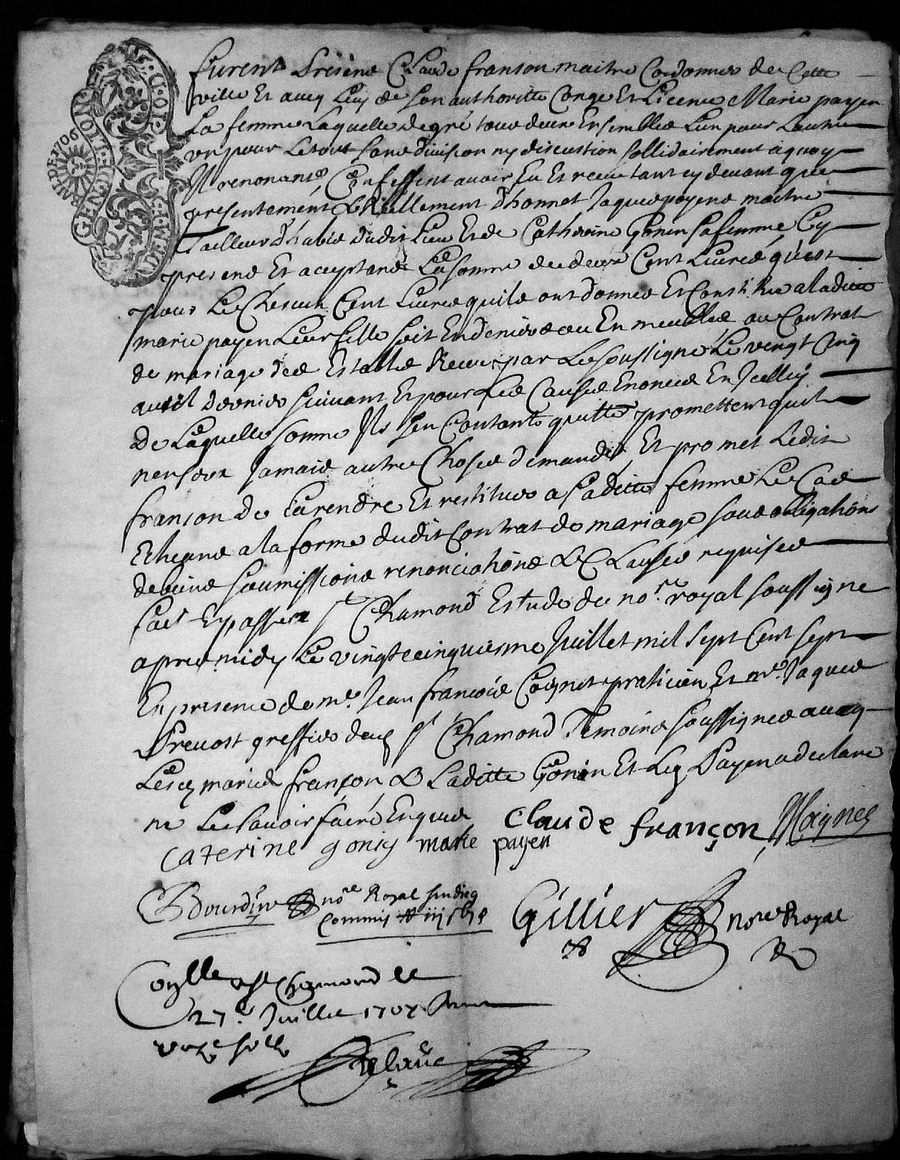 furent presens Claude franson maitre Cordonnier de Cette
ville Et avecq Luy de son authoritté Congé Et Licence Marie payen
La femme Laquelle de gré tous deux Ensembles L'un pour L'autre
un pour Le tout sans division ny discution sollidairement a quoy
Ils renoncent Confessent avoir Eu Et receu tant cy devant que
presentement & Réellement d'honnet Jaques payens maitre
Tailleur d'habis dudit Lieu Et de Catherine Gonin sa femme Cy
presens Et acceptans La somme de deux Cent Livres qu'est
pour Le Chescun Cent Livres quils ont donnés Et Constitué a laditte
marie payen Leur fille soit En deniers ou En meubles au Contrat
de mariage des Estably Receu par Le soussigné Le vingt Cinq
avril dernier suivant Et pour les Causes Enoncés En Icelluy
de Laquelle somme Ils s'en Contante quitte promettent quil
n'en sera Jamais autre Chose demandé Et promet Ledit
franson de La rendre Et restituer a Laditte femme Le Cas
Echeant a la forme dudit Contrat de mariage sous obligations
de biens soumissions renonciations & Clauses requises
fait Et passé a St Chamond Estude du nore royal soussigné
apres midy Le vingt cinquiesme Juillet mil sept Cent sept
En presence de me Jean francois Coignet praticien Et me Jaques
Prevost greffier de St Chamond Temoins soussignes avecq
Lesq mariés françon & Laditte Gonin Et Led Payen a declaré
ne Le savoir faire Enquis
Claude françon Coignet
caterine gonin marie payen
Bourdin nore Royal sindicq
Commis
Gillier nore Royal
Collé a St Chamond le
27e Juillet 1707